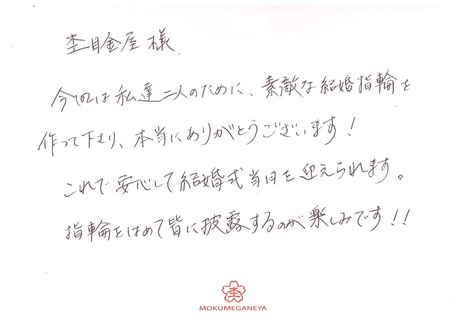 杢目金屋様
今回は私達二人のために、素敵な結婚指輪を
作って下さり、本当にありがとうございます！
これで安心して結婚式当日を迎えられます。
指輪をはめて皆に披露するのが楽しみです！！
MOKUMEGANEYA